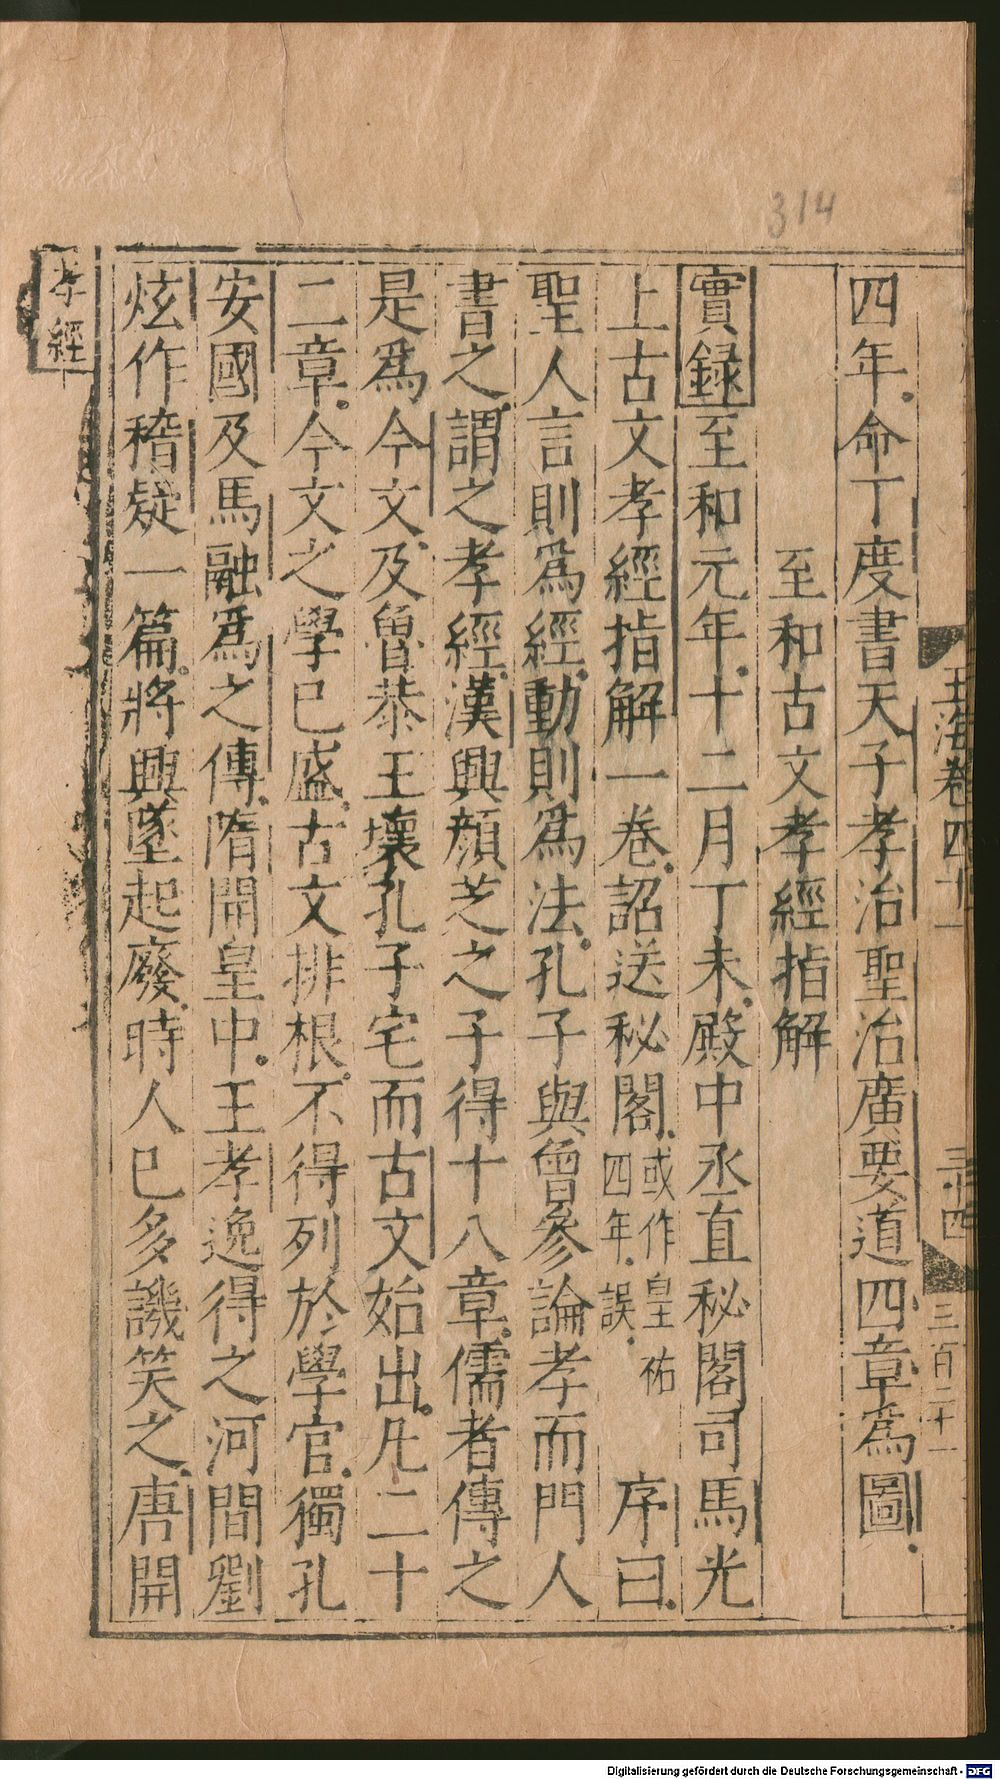 314
玉海卷四十一
三十四
三百二十一
四年命丁度書天子孝治聖治廣要道四章爲圖
至和古文孝經指解
實録至和元年十二月丁未殿中丞直秘閣司馬光
上古文孝經指解一卷詔送秘閣或作皇祐四年誤序曰
聖人言則爲經動則爲法孔子與曾參論孝而門人
書之謂之孝經漢興顔芝之子得十八章儒者傳之
是爲今文及魯恭王壞孔子宅而古文始出凡二十
二章今文之學已盛古文排根不得列於學官獨孔
安國及馬融爲之傳隋開皇中王孝逸得之河間劉
炫作稽疑一篇將興墜起廢時人已多譏笑之唐開
孝經
Digitalisierung gefördert durch die Deutsche Forschungsgemeinschaft - DFG